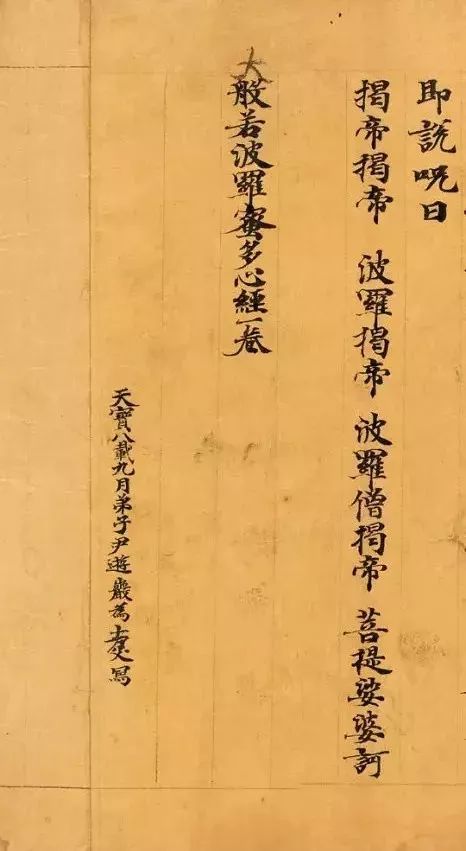 即說呪曰
揭帝揭帝 波羅揭帝 波羅僧揭帝 菩提娑婆訶
大般若波羅蜜多心經一卷
天寶八載九月弟子尹遊巖為寫